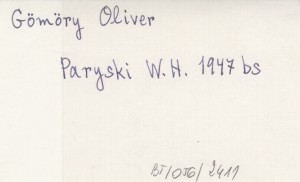 Gömöry Oliver
Paryski W.H. 1947 bs
BT/OJG/2411